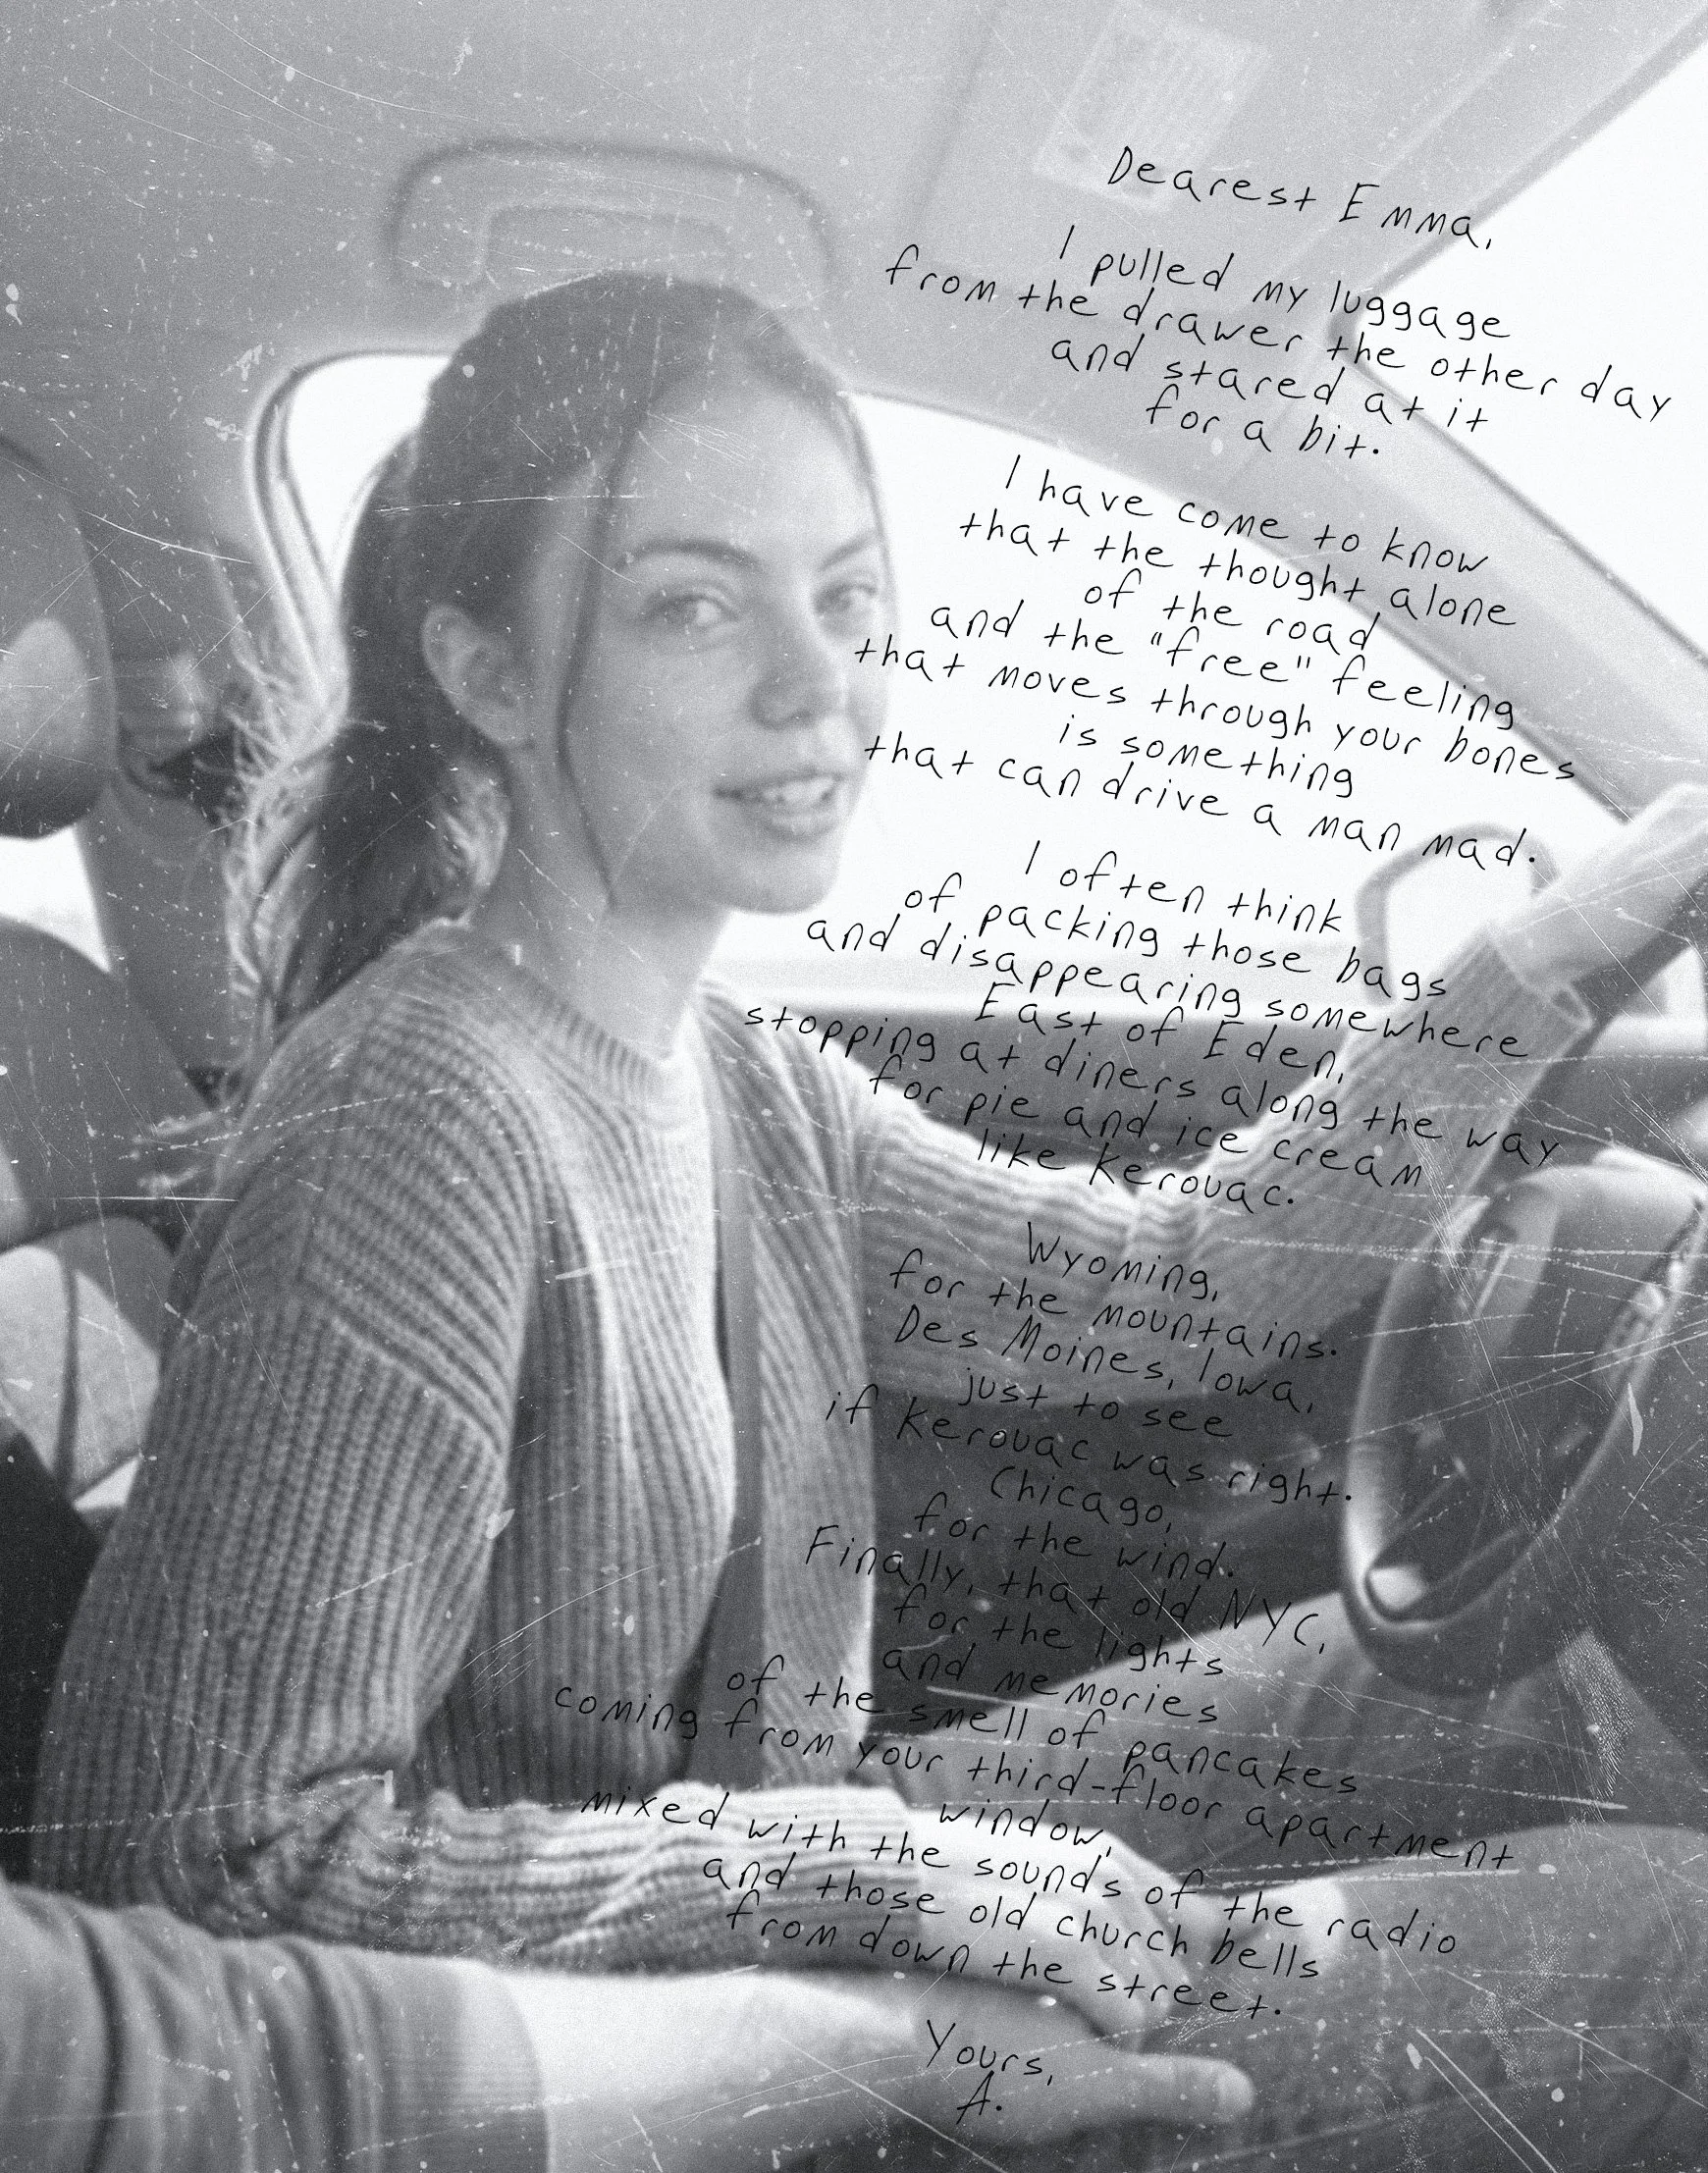 Dearest Emma,
I pulled my luggage
from the drawer the other day
and stared at it
for a bit.
I have come to know
that the thought alone
of the road
and the "free" feeling
that moves through your bones
is something
that can drive a man mad.
I often think
of packing those bags
and disappearing somewhere
East of Eden,
stopping at diners along the way
for pie and ice cream
like Kerouac.
Wyoming,
for the mountains.
Des Moines, Iowa,
just to see
if Kerouac was right.
Chicago,
for the wind.
Finally, that old NYC,
for the lights
and memories
of the smell of pancakes
coming from your third-floor apartment
window,
mixed with the sounds of the radio
and those old church bells
from down the street.
Yours,
A.